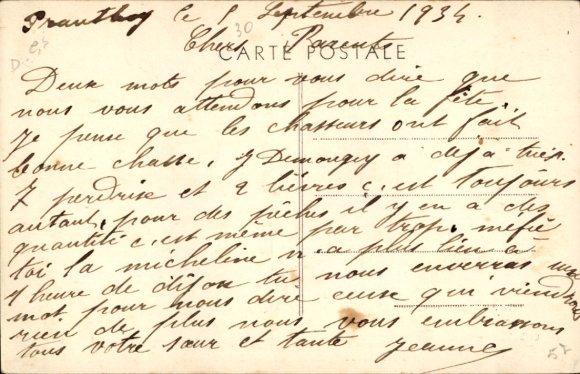 Prauthoy le 5 Septembre 1934.
30
Chers Parents
CARTE POSTALE
Deux mots pour vous dire que
nous vous attendons pour la fête,
Je pense que les chasseurs ont fait
bonne chasse, J Demongey a déjà tué
7 perdrise et 2 lièvres c'est toujours
autant, pour des pêches il y en a des
quantité c'est même par trop. mefie
toi la micheline n'a plus lieu à
7 heure de dijon tu nous enverras un
mot pour nous dire ceuse qui viendrons
rien de plus nous vous embrassons
tous votre sœur et tante Jeanne